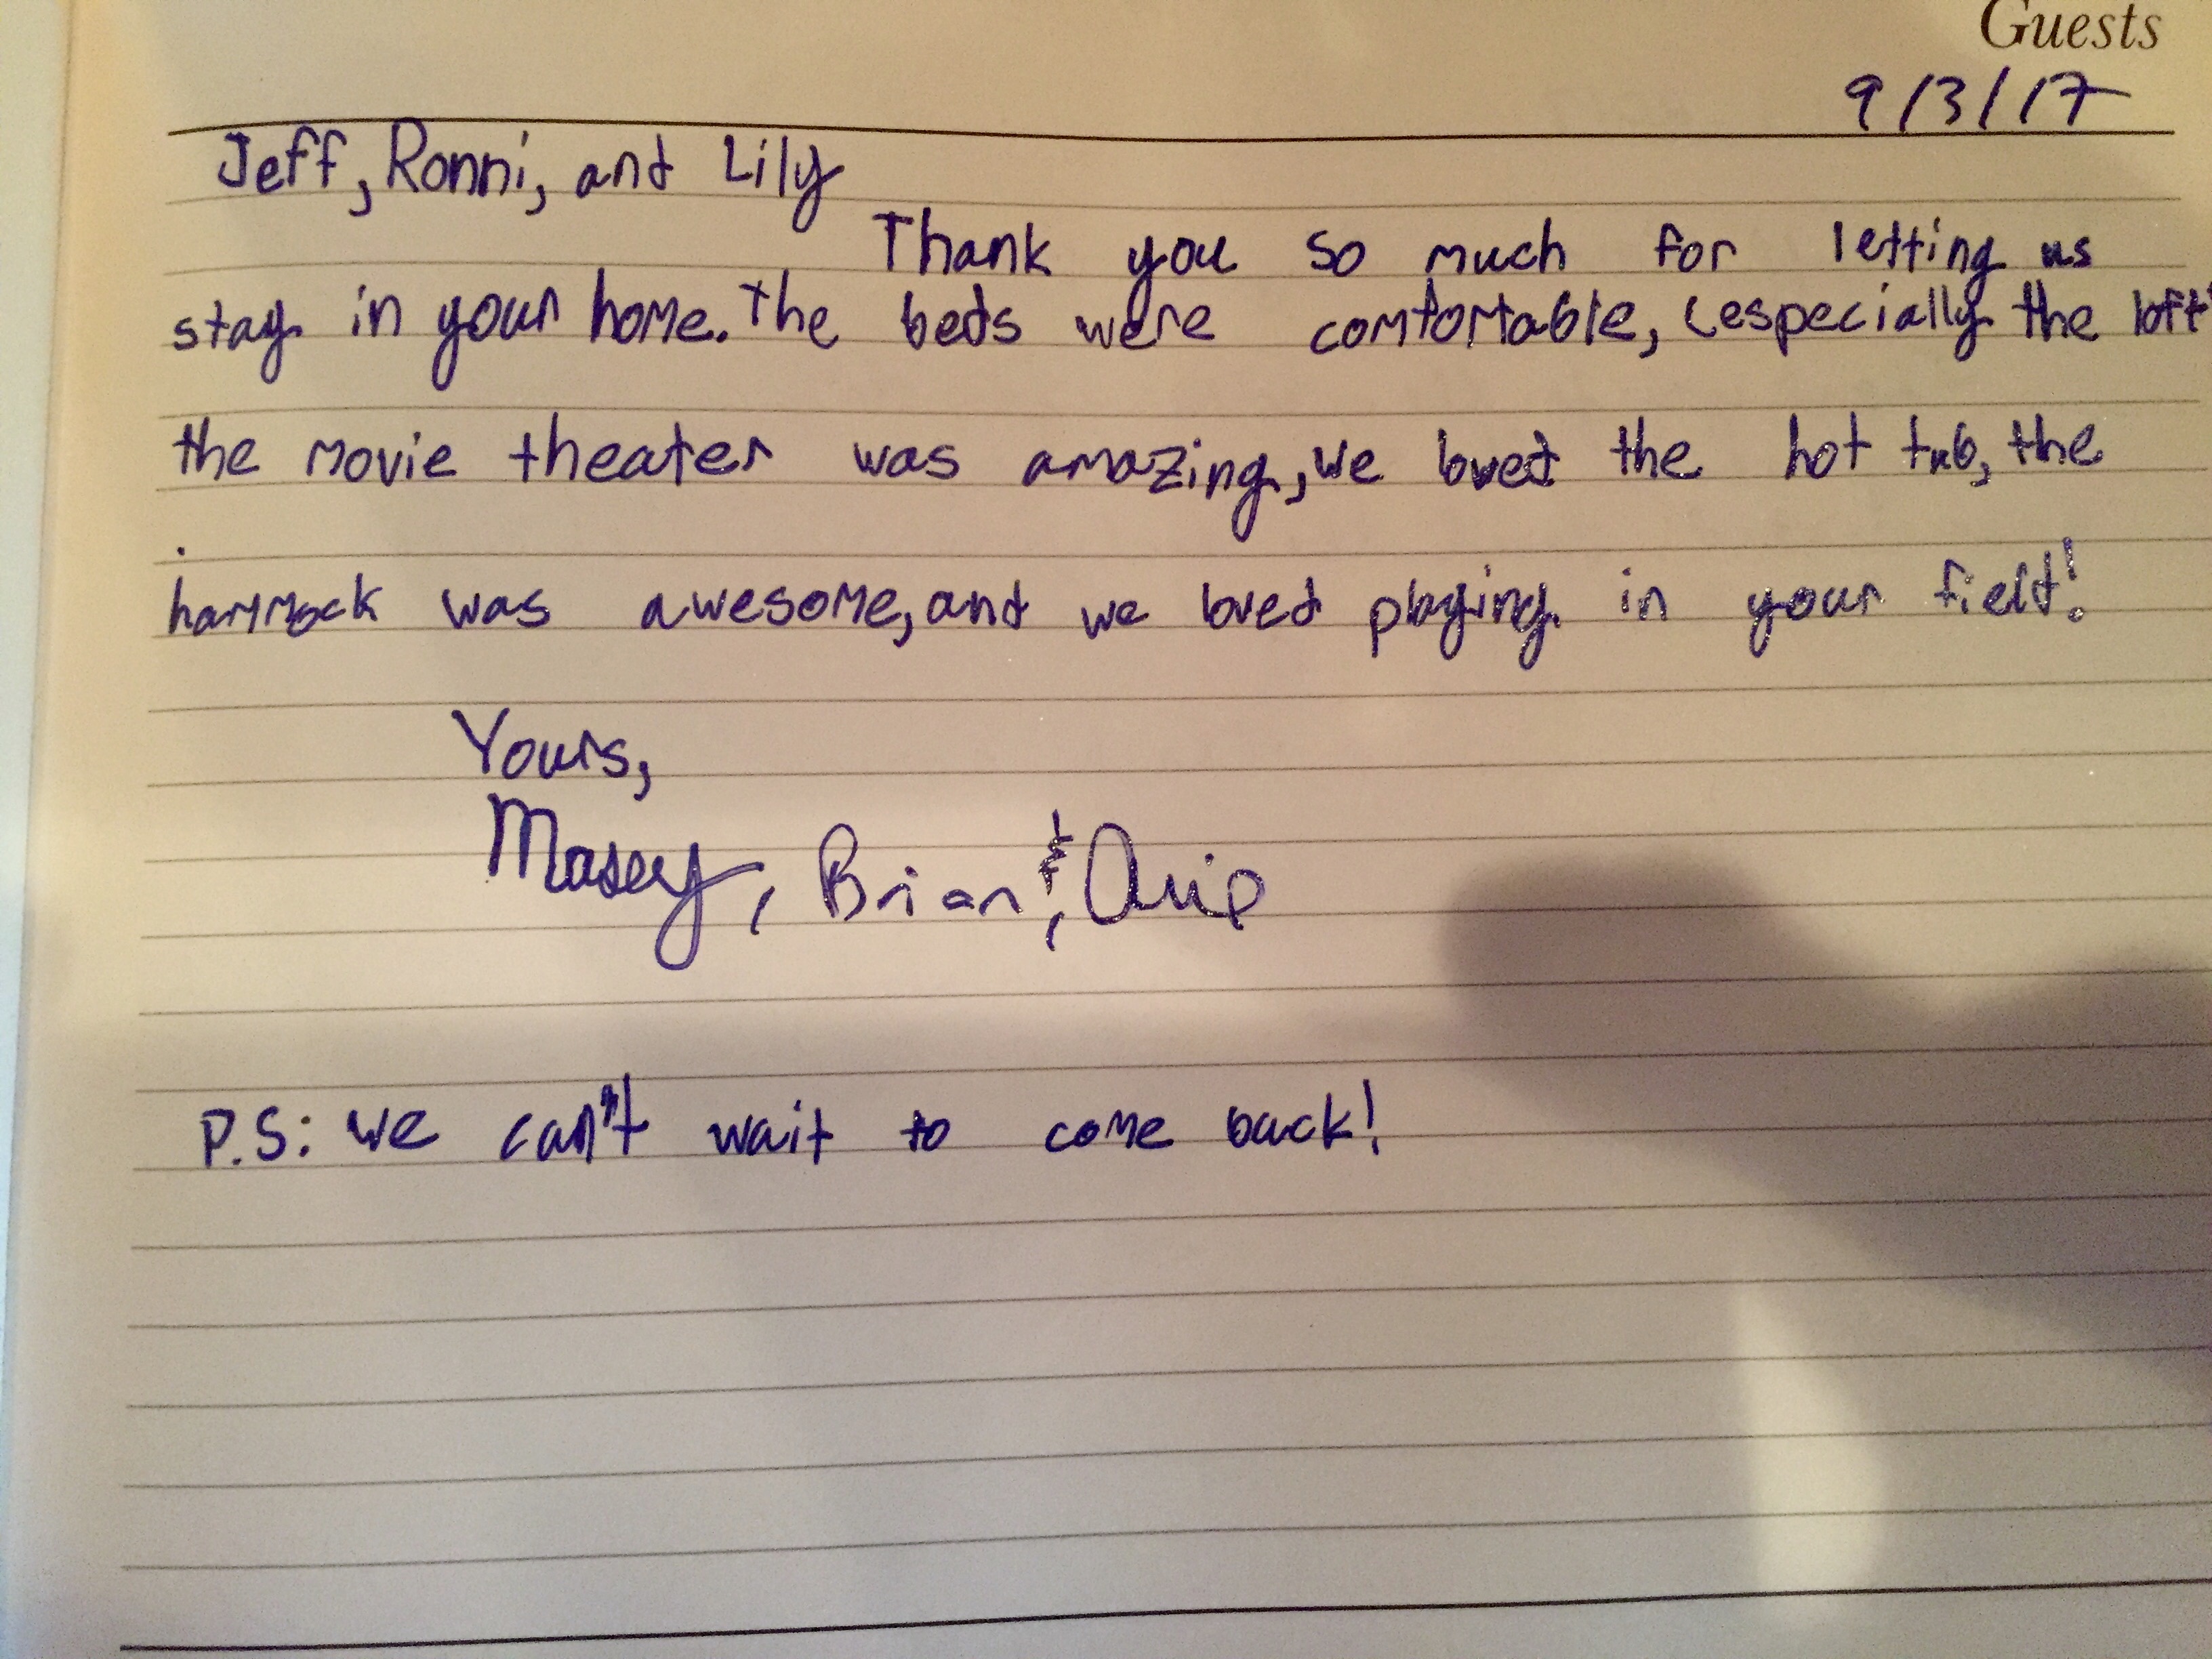 Guests
9/3/17
Jeff, Ronni, and Lily
Thank you so much for letting us
stay in your home. The beds were comfortable, (especially the loft
the movie theater was amazing, we loved the hot tub, the
hammock was awesome, and we loved playing in your field!
Yours,
Masey, Brian, &
P.S: we can't wait to come back!